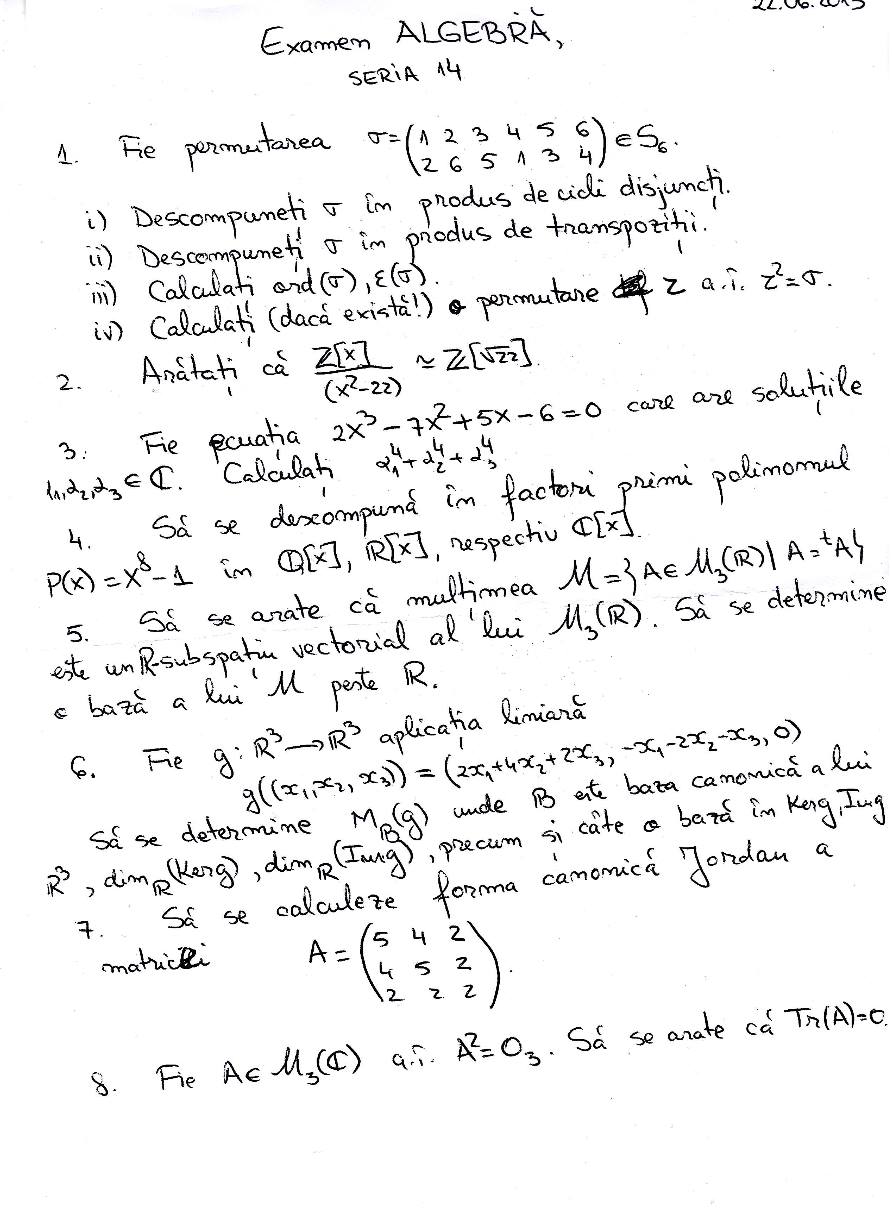 22.06.2013
Examen ALGEBRĂ,
SERIA 14
1. Fie permutarea σ=(1 2 3 4 5 6
2 6 5 1 3 4) ∈ S₆.
i) Descompuneți σ în produs de cicli disjuncți.
ii) Descompuneți σ în produs de transpoziții.
iii) Calculați ord(σ), ε(σ).
iv) Calculați (dacă există!) o permutare z a.î. z²=σ.
2. Arătați că ℤ[X]/(X²-22) ≃ ℤ[√22]
3. Fie ecuația 2X³-7X²+5X-6=0 care are soluțiile
α₁,α₂,α₃ ∈ ℂ. Calculați α₁⁴+α₂⁴+α₃⁴
4. Să se descompună în factori primi polinomul
P(X)=X⁸-1 în ℚ[X], ℝ[X], respectiv ℂ[X].
5. Să se arate că mulțimea M={A∈M₃(ℝ) | A=ᵗA}
este un ℝ-subspațiu vectorial al lui M₃(ℝ). Să se determine
o bază a lui M peste ℝ.
6. Fie g: ℝ³→ℝ³ aplicația liniară
g((x₁,x₂,x₃))=(2x₁+4x₂+2x₃, -x₁-2x₂-x₃, 0)
Să se determine M_B(g) unde B este baza canonică a lui
ℝ³, dim_ℝ(Ker g), dim_ℝ(Im g), precum și câte o bază în Ker g, Im g
7. Să se calculeze forma canonică Jordan a
matricei A=(5 4 2
4 5 2
2 2 2).
8. Fie A∈M₃(ℂ) a.î. A²=O₃. Să se arate că Tr(A)=0.